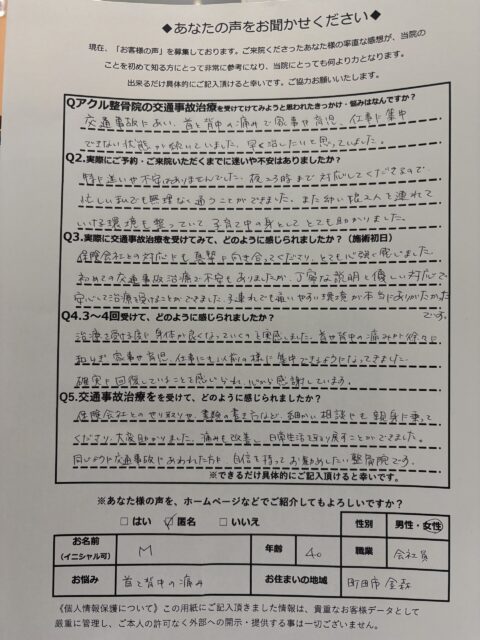 ◆あなたの声をお聞かせください◆
現在、「お客様の声」を募集しております。ご来院くださったあなた様の率直な感想が、当院の
ことを初めて知る方にとって非常に参考になり、当院にとっても何より力となります。
出来るだけ具体的にご記入頂けると幸いです。ご協力お願いいたします。
Qアクル整骨院の交通事故治療を受けてけてみようと思われたきっかけ・悩みはなんですか？
交通事故にあい、首と背中の痛みで家事や育児、仕事に集中
できない状態が続いていました。早く治したいと思っていました。
Q2.実際にご予約・ご来院いただくまでに迷いや不安はありましたか？
特に迷いや不安はありませんでした。夜23時まで対応してくださるので
忙しい私でも無理なく通うことができました。また幼い孩2人を連れて
いける環境も整っていて子育て中の身としてとても助かりました。
Q3.実際に交通事故治療を受けてみて、どのように感じられましたか？（施術初日）
保険会社との対応にも真摯に向き合ってくださり、とても心強く感じました。
初めての交通事故治療で不安もありましたが、丁寧な説明と優しい対応で
安心して治療を受けることができました。子連れでも通いやすい環境が本当にありがたかった
です。
Q4.3～4回受けて、どのように感じられましたか？
治療を受ける度に身体が良くなっていくのを実感しました。首や背中の痛みが徐々に
和らぎ家事や育児、仕事にも以前の様に集中できるようになってきました。
確実に回復していることを感じられ、心から感謝しています。
Q5.交通事故治療をを受けて、どのように感じられましたか？
保険会社とのやり取りや、書類の書き方など、細かい相談にも親身に乗って
くださり、大変助かりました。痛みも改善し、日常生活を取り戻すことができました。
同じように交通事故にあわれた方に、自信を持ってお勧めしたい整骨院です。
※できるだけ具体的にご記入頂けると幸いです。
※あなた様の声を、ホームページなどでご紹介してもよろしいですか？
□はい ☑匿名 □いいえ 性別 男性・女性
お名前（イニシャル可） M 年齢 40 職業 会社員
お悩み 首と背中の痛み お住まいの地域 町田市 金森
《個人情報保護について》この用紙にご記入頂きました情報は、貴重なお客様データとして
厳重に管理し、ご本人の許可なく外部への開示・提供する事は一切ございません。